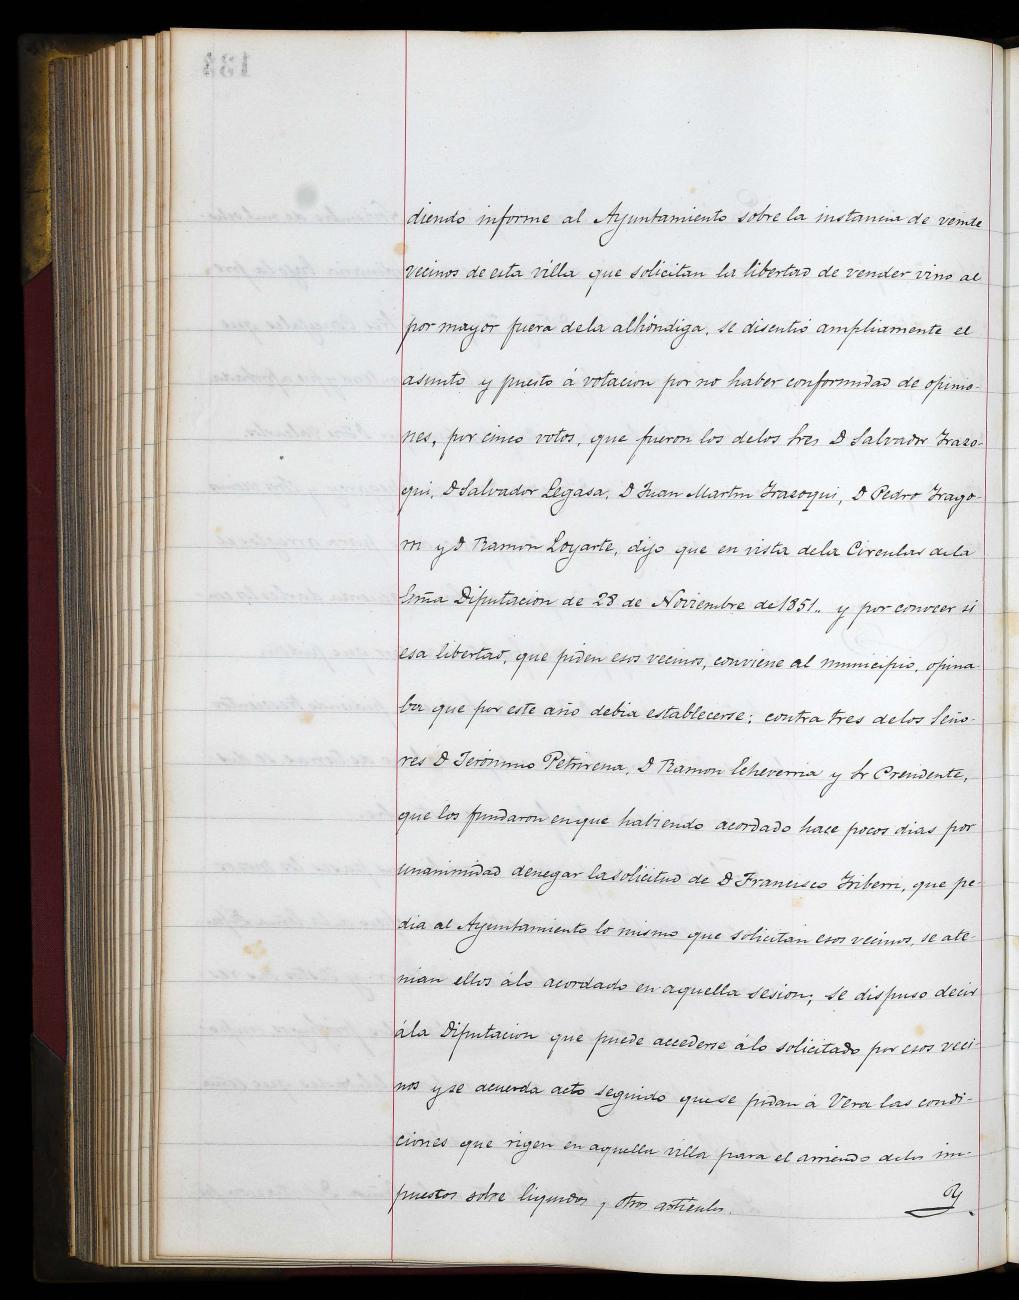 diendo informe al Ayuntamiento sobre la instancia de veinte
vecinos de esta villa que solicitan la libertad de vender vino al
por mayor fuera de la alhóndiga, se discutió ampliamente el
asunto y puesto á votacion por no haber conformidad de opinio-
nes, por cinco votos, que fueron los de los Sres D Salvador Irazo-
qui, D Salvador Legasa, D Juan Martin Irazoqui, D Pedro Irago-
rri y D Ramon Loyarte, dijo que en vista de la Circular de la
Exma Diputacion de 28 de Noviembre de 1851., y por conocer si
esa libertad, que piden esos vecinos, conviene al municipio, opina-
ba que por este año debia establecerse; contra tres de los Seño-
res D Jerónimo Petrirena, D Ramon Echeverria y Sr Presidente,
que los fundaron en que habiendo acordado hace pocos dias por
unanimidad denegar la solicitud de D Francisco Iriberri, que pe-
dia al Ayuntamiento lo mismo que solicitan esos vecinos, se ate-
nian ellos á lo acordado en aquella sesion; se dispuso decir
á la Diputacion que puede accederse á lo solicitado por esos veci-
nos y se acuerda acto seguido que se pidan á Vera las condi-
ciones que rigen en aquella villa para el arriendo de los im-
puestos sobre liquidos y otros articulos.